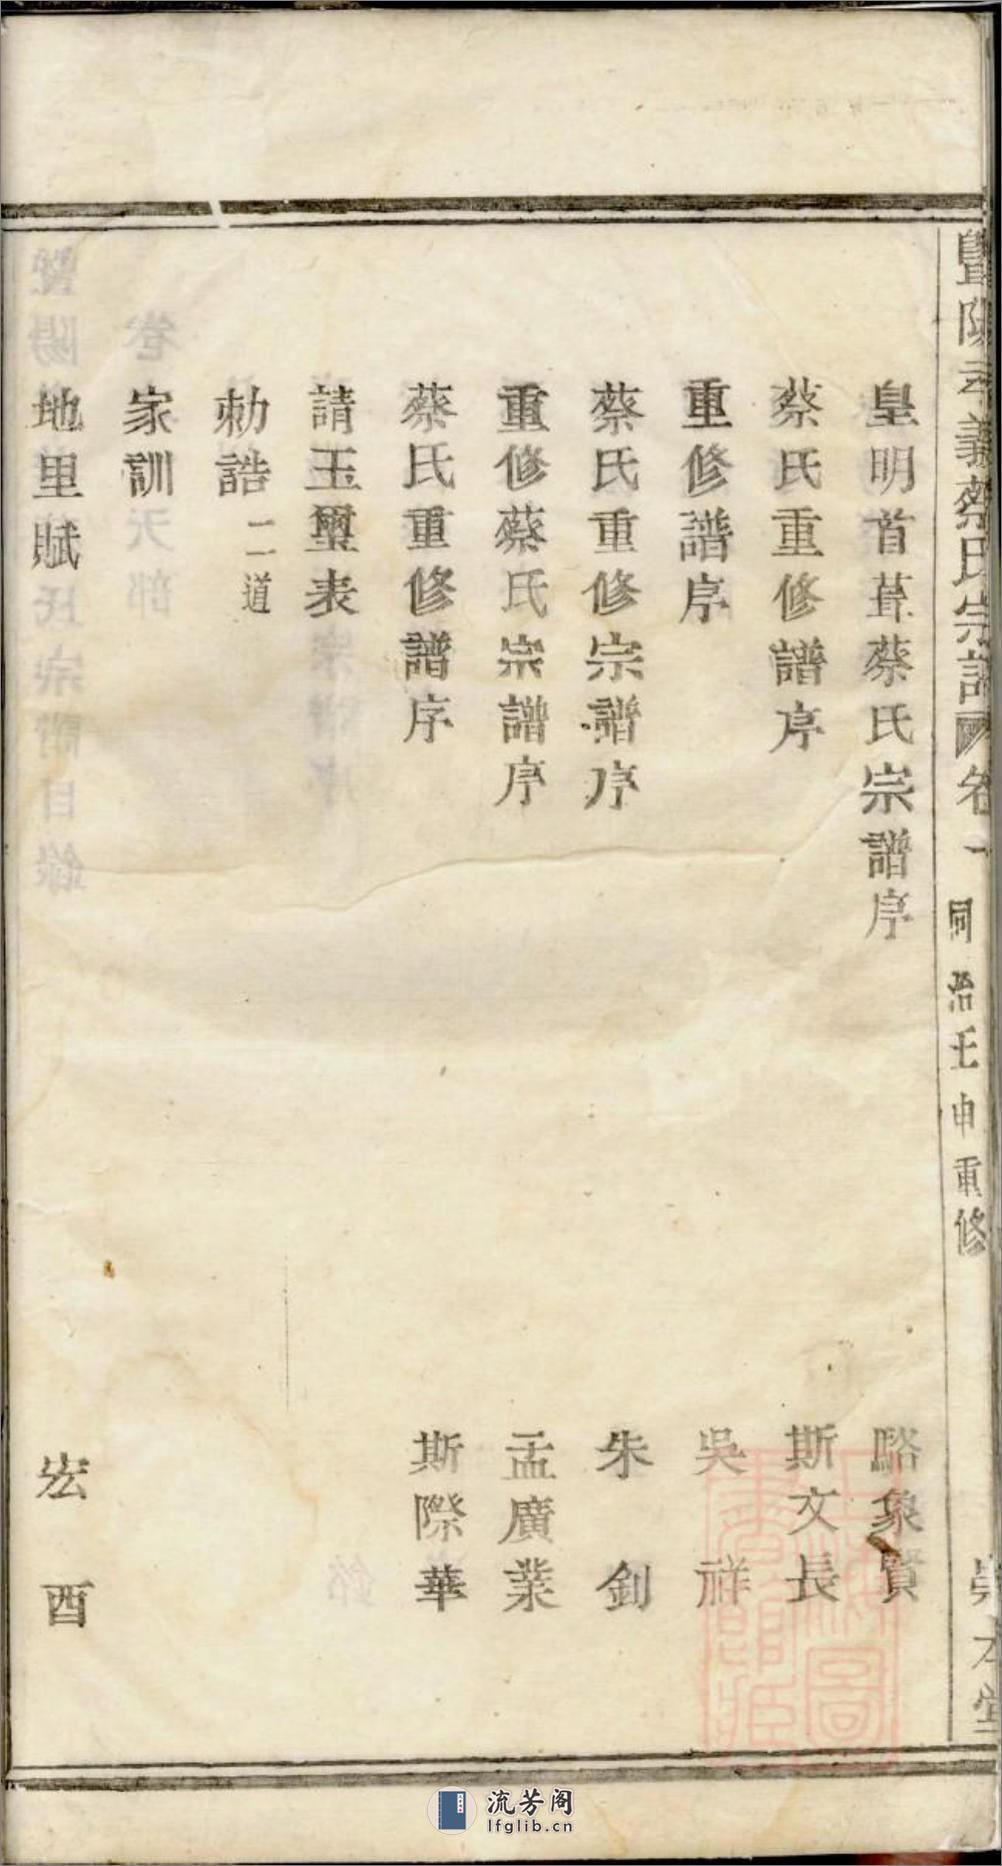 暨陽孝義蔡氏宗譜 卷一 同治壬申重修 崇本堂
皇明首葺蔡氏宗譜序 駱象賢
蔡氏重修譜序 斯文長
重修譜序 吳祥
蔡氏重修宗譜序 朱釗
重修蔡氏宗譜序 孟廣業
蔡氏重修譜序 斯際華
請玉璽表
勅誥 二道
家訓
地里賦 宏酉
流芳阁
lfglib.cn